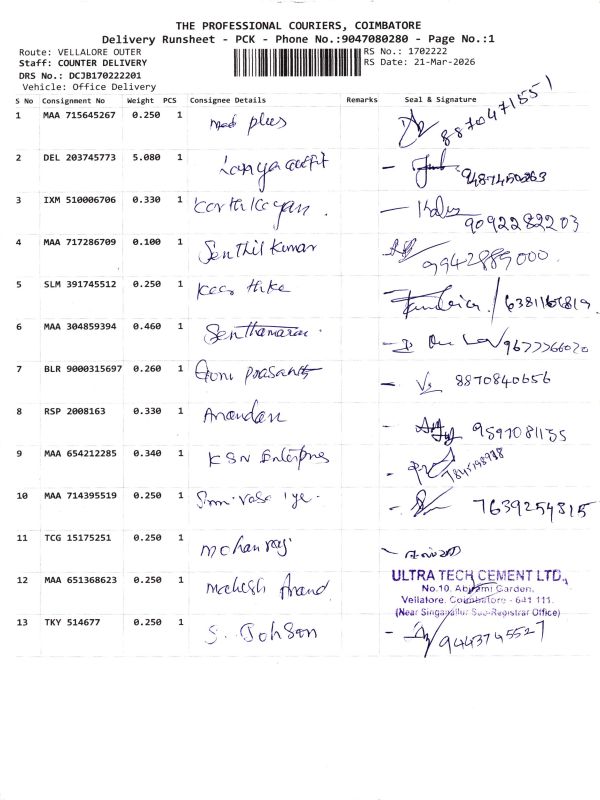 THE PROFESSIONAL COURIERS, COIMBATORE
Delivery Runsheet - PCK - Phone No.:9047080280 - Page No.:1
Route: VELLALORE OUTER RS No.: 1702222
Staff: COUNTER DELIVERY RS Date: 21-Mar-2026
DRS No.: DCJB170222201
Vehicle: Office Delivery
S No Consignment No Weight PCS Consignee Details Remarks Seal & Signature
1 MAA 715645267 0.250 1 med plus 8870471551
2 DEL 203745773 5.080 1
3 IXM 510006706 0.330 1 Karthikeyan. 9092282203
4 MAA 717286709 0.100 1 Senthil Kumar 9942889000.
5 SLM 391745512 0.250 1
6 MAA 304859394 0.460 1
7 BLR 9000315697 0.260 1 8870840656
8 RSP 2008163 0.330 1 Anandan
9 MAA 654212285 0.340 1 KSN
10 MAA 714395519 0.250 1 7639254815
11 TCG 15175251 0.250 1 mohanraj
12 MAA 651368623 0.250 1 Mahesh Anand
ULTRA TECH CEMENT LTD.,
No.10, Abirami Garden,
Vellalore, Coimbatore - 641 111.
(Near Singanallur Sub-Registrar Office)
13 TKY 514677 0.250 1 S. Johson 9443745527